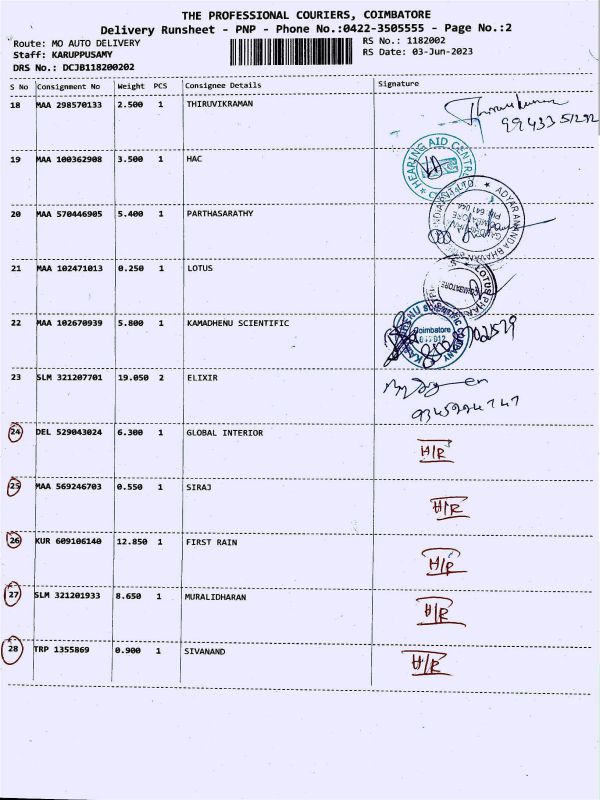 THE PROFESSIONAL COURIERS, COIMBATORE
Delivery Runsheet - PNP - Phone No.:0422-3505555 - Page No.:2
Route: MO AUTO DELIVERY RS No.: 1182002
Staff: KARUPPUSAMY RS Date: 03-Jun-2023
DRS No.: DCJB118200202
S No Consignment No Weight PCS Consignee Details Signature
18 MAA 298570133 2.500 1 THIRUVIKRAMAN
19 MAA 100362908 3.500 1 HAC HEARING AID CENTRE
20 MAA 570446905 5.400 1 PARTHASARATHY ADYAR ANANDA BHAVAN
21 MAA 102471013 0.250 1 LOTUS LOTUS
22 MAA 102670939 5.800 1 KAMADHENU SCIENTIFIC Coimbatore
23 SLM 321207701 19.050 2 ELIXIR
24 DEL 529043024 6.300 1 GLOBAL INTERIOR H/R
25 MAA 569246703 0.550 1 SIRAJ H/R
26 KUR 609106140 12.850 1 FIRST RAIN H/R
27 SLM 321201933 8.650 1 MURALIDHARAN H/R
28 TRP 1355869 0.900 1 SIVANAND H/R